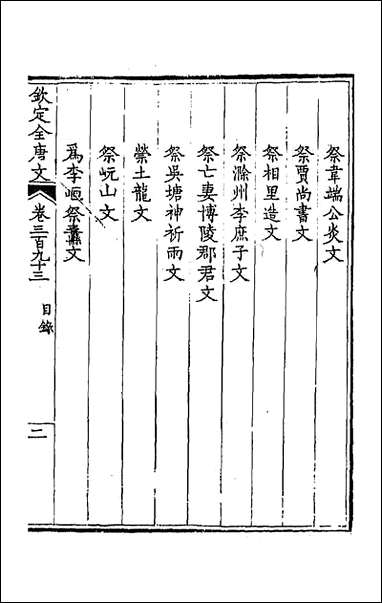 祭韋端公炎文
祭賈尚書文
祭相里造文
祭滁州李庶子文
祭亡妻博陵郡君文
祭吳塘神祈雨文
禜土龍文
祭岘山文
爲李峘祭纛文
欽定全唐文 卷三百九十三 目錄 二